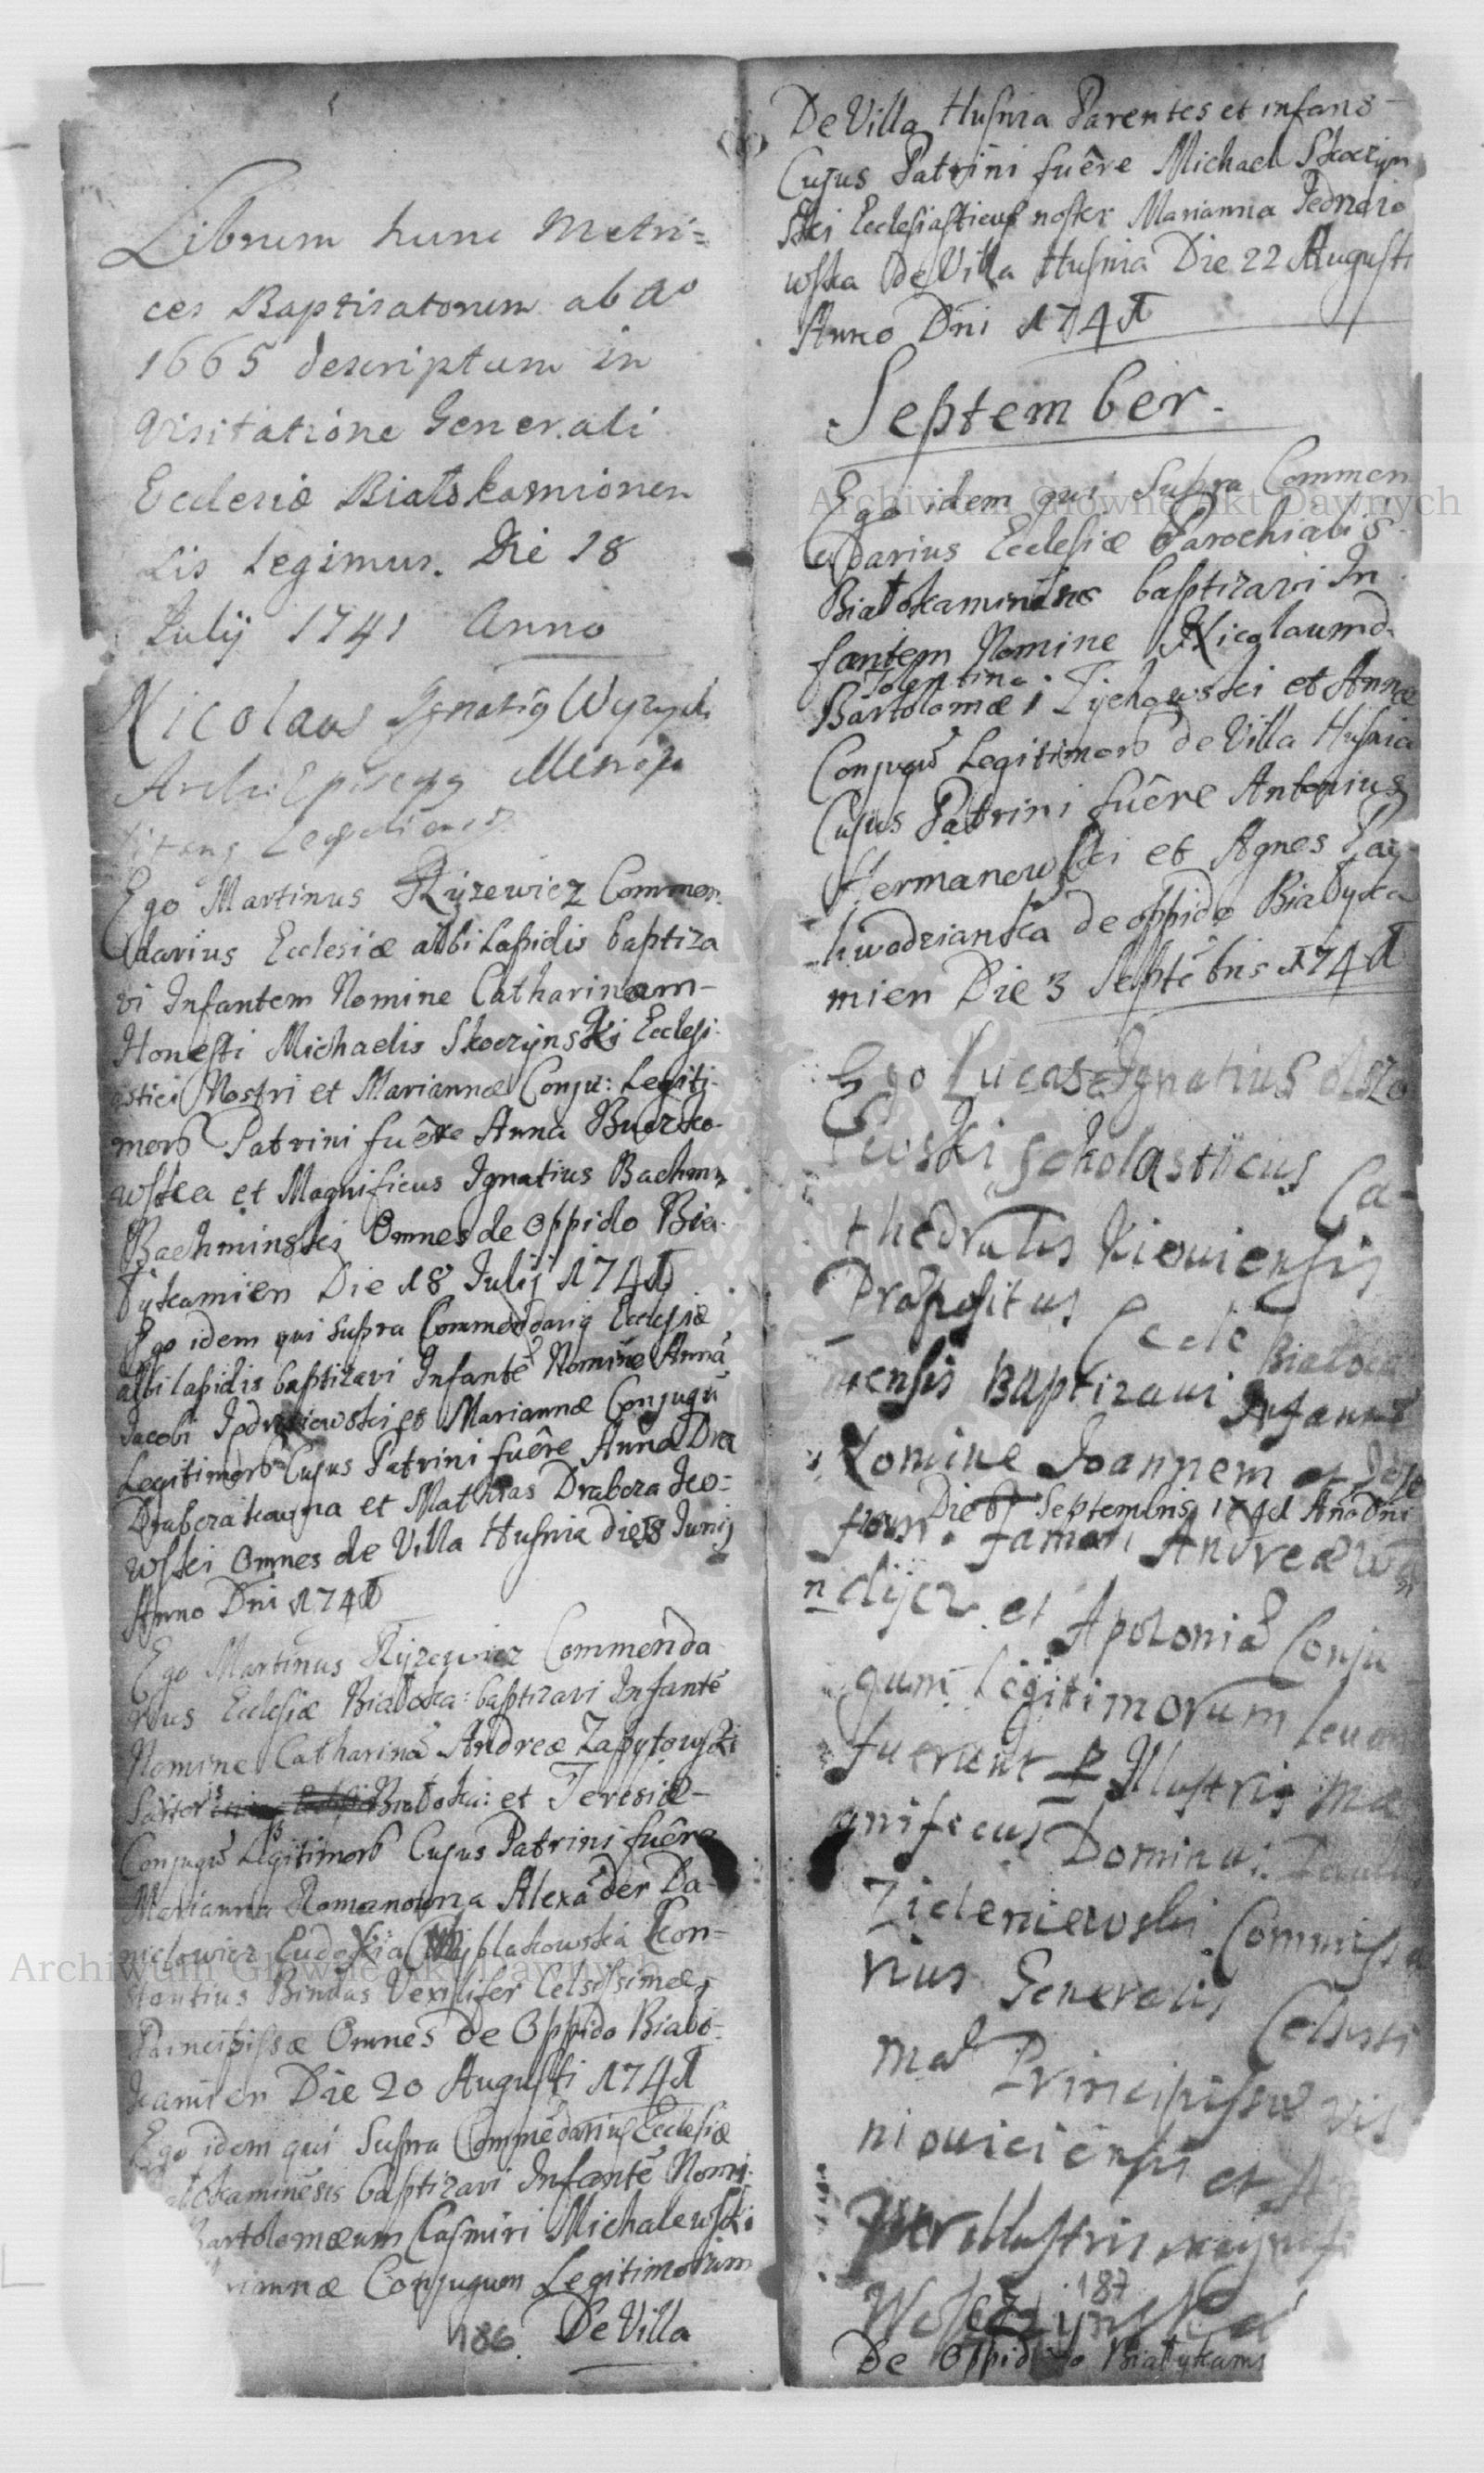 Librum hunc Metri=
ces Baptisatorum ab Ao
1665 descriptum in
Visitatione Generali
Ecclesiæ Białokamionen
sis legimus. Die 18
Julij 1741 Anno
Nicolaus Ignatius Wyzycki
Archi Episcopus
Ego Martinus Ryzewicz Commen
darius Ecclesiæ albi Lapidis baptiza
vi Infantem Nomine Catharinam
Honesti Michaelis Skoczynski Ecclesi
astici Nostri et Mariannæ Conju: Legiti
morũ Patrini fuêre Anna Buczko
wska et Magnificus Ignatius Bachm
Bachminski Omnes de Oppido Bia
łykamien Die 18 Julij 1741
Ego idem qui supra Commendarius Ecclesiæ
albi lapidis baptizavi Infantẽ Nomine Annã
Jacobi Jednoiowski et Mariannæ Conjugũ
Legitimorũ Cujus Patrini fuêre Anna Dra
Drabczakowna et Mathias Drabcza Ko=
wski Omnes de Villa Husnia die 18 Junij
Anno Dni 1741
Ego Martinus Ryzewicz Commenda
rius Ecclesiæ Białoka: baptizavi Infantẽ
Nomine Catharinã Andreæ Zapytowski
Białoka: et Teresiæ
Conjugũ Legitimorũ Cujus Patrini fuêre
Marianna Romanowna Alexãder Da
nielowicz Eudoxia Kon=
stantius Bindas Vexilifer Celsissimæ
Principissæ Omnes de Oppido Biało
kamien Die 20 Augusti 1741
Ego idem qui Supra Commẽdarius Ecclesiæ
baptizavi Infantẽ Nomi
Bartolomæum Casmiri Michalewski
Conjugum Legitimorum
186 De Villa
De Villa Husnia Parentes et infans
Cujus Patrini fuêre Michael Skoczyn
ski Ecclesiasticus noster Marianna Jednoio
wska de Villa Husnia Die 22 Augusti
Anno Dni 1741
September.
Archiwum Główne Akt Dawnych
Ego idem qui Supra Commen
darius Ecclesiæ Parochialis
Białokaminensis baptizavi In
fantem Nomine Nicolaum d
Tolentino
Bartolomæi Tychowski et Annæ
Conjugũ Legitimorũ de Villa Husnia
Cujus Patrini fuêre Antonius
Hermanowski et Agnes
de oppido Białyka
mien Die 3 Septẽbris 1741
Ego Lucas Ignatius Olszo
ewski Scholasticus Ca=
thedralis Kioviensis
Præpositus Eccle Białoca
nensis Baptizavi Infantẽ
Nomine Joannem et Jose
Die 6 Septembris 1741 Ano Dni
fum. famati Andreæ
et Apoloniæ Conju
gum legitimorum levan
fuerunt Illustris Ma
gnificus Dominus
Zieleniewski Commissa
rius Generalis Celsissi
mæ Principissæ Wis
nioviciensis et
Perillustris magnifi
187
De Oppido Białykami
Archiwum Główne Akt Dawnych